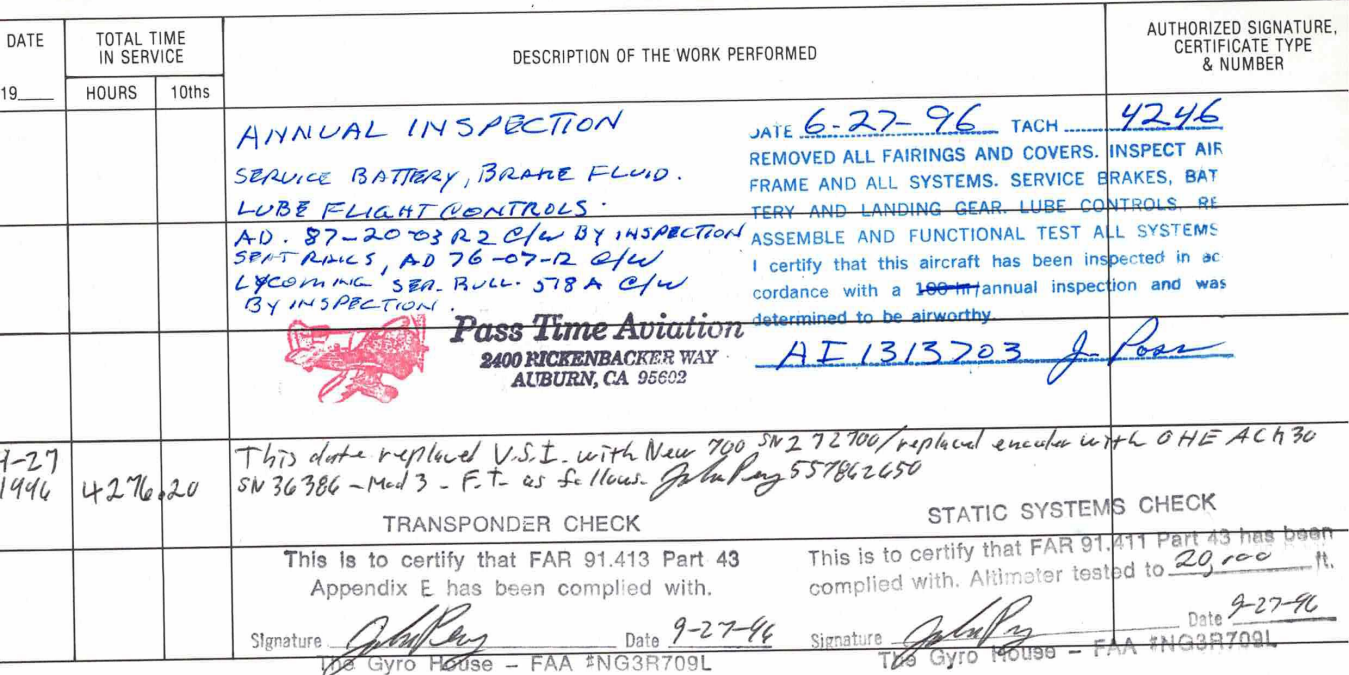 DATE
19
TOTAL TIME
IN SERVICE
HOURS
10ths
DESCRIPTION OF THE WORK PERFORMED
AUTHORIZED SIGNATURE,
CERTIFICATE TYPE
& NUMBER
ANNUAL INSPECTION
SERVICE BATTERY, BRAKE FLUID.
LUBE FLIGHT CONTROLS.
AD. 87-20-03 R2 C/W BY INSPECTION
SEAT RAILS, AD 76-07-12 C/W
LYCOMING SER. BULL. 518A C/W
BY INSPECTION.
Pass Time Aviation
2400 RICKENBACKER WAY
AUBURN, CA 95602
DATE 6-27-96 TACH 4246
REMOVED ALL FAIRINGS AND COVERS. INSPECT AIR
FRAME AND ALL SYSTEMS. SERVICE BRAKES, BAT
TERY AND LANDING GEAR. LUBE CONTROLS. RE
ASSEMBLE AND FUNCTIONAL TEST ALL SYSTEMS
I certify that this aircraft has been inspected in ac
cordance with a 100 hr/annual inspection and was
determined to be airworthy.
AI 1313703 J. Pass
9-27
1996
4276.20
This date replaced V.S.I. with New 700 SN 272700/replaced encoder with OHE ACK 30
SN 36386 - Mod 3 - F.T. as follows. John Perry 557862650
TRANSPONDER CHECK
This is to certify that FAR 91.413 Part 43
Appendix E has been complied with.
Signature John Perry Date 9-27-96
The Gyro House – FAA #NG3R709L
STATIC SYSTEMS CHECK
This is to certify that FAR 91.411 Part 43 has been
complied with. Altimeter tested to 20,000 ft.
Signature John Perry Date 9-27-96
The Gyro House – FAA #NG3R709L